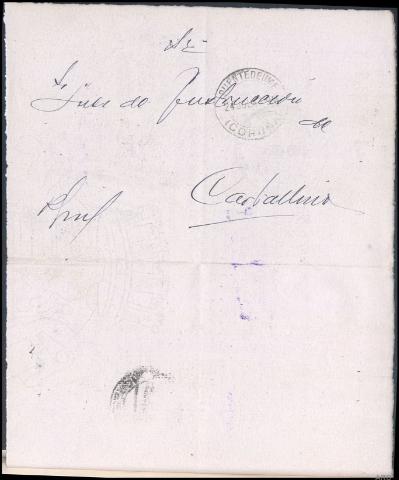 Sr
Juez de Instrucción
de
Carballino
PUENTEDEUME
(CORUÑA)